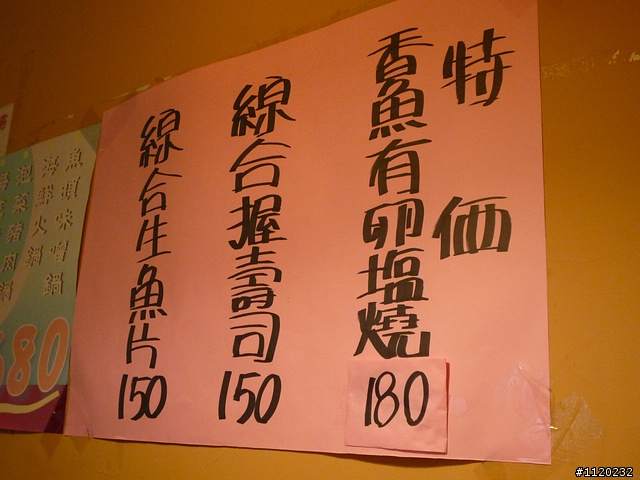 特価
香魚有卵塩燒
180
線合握壽司
150
線合生魚片
150
魚頭味噌鍋
海鮮火鍋
泡菜豬肉鍋
680
#1120232